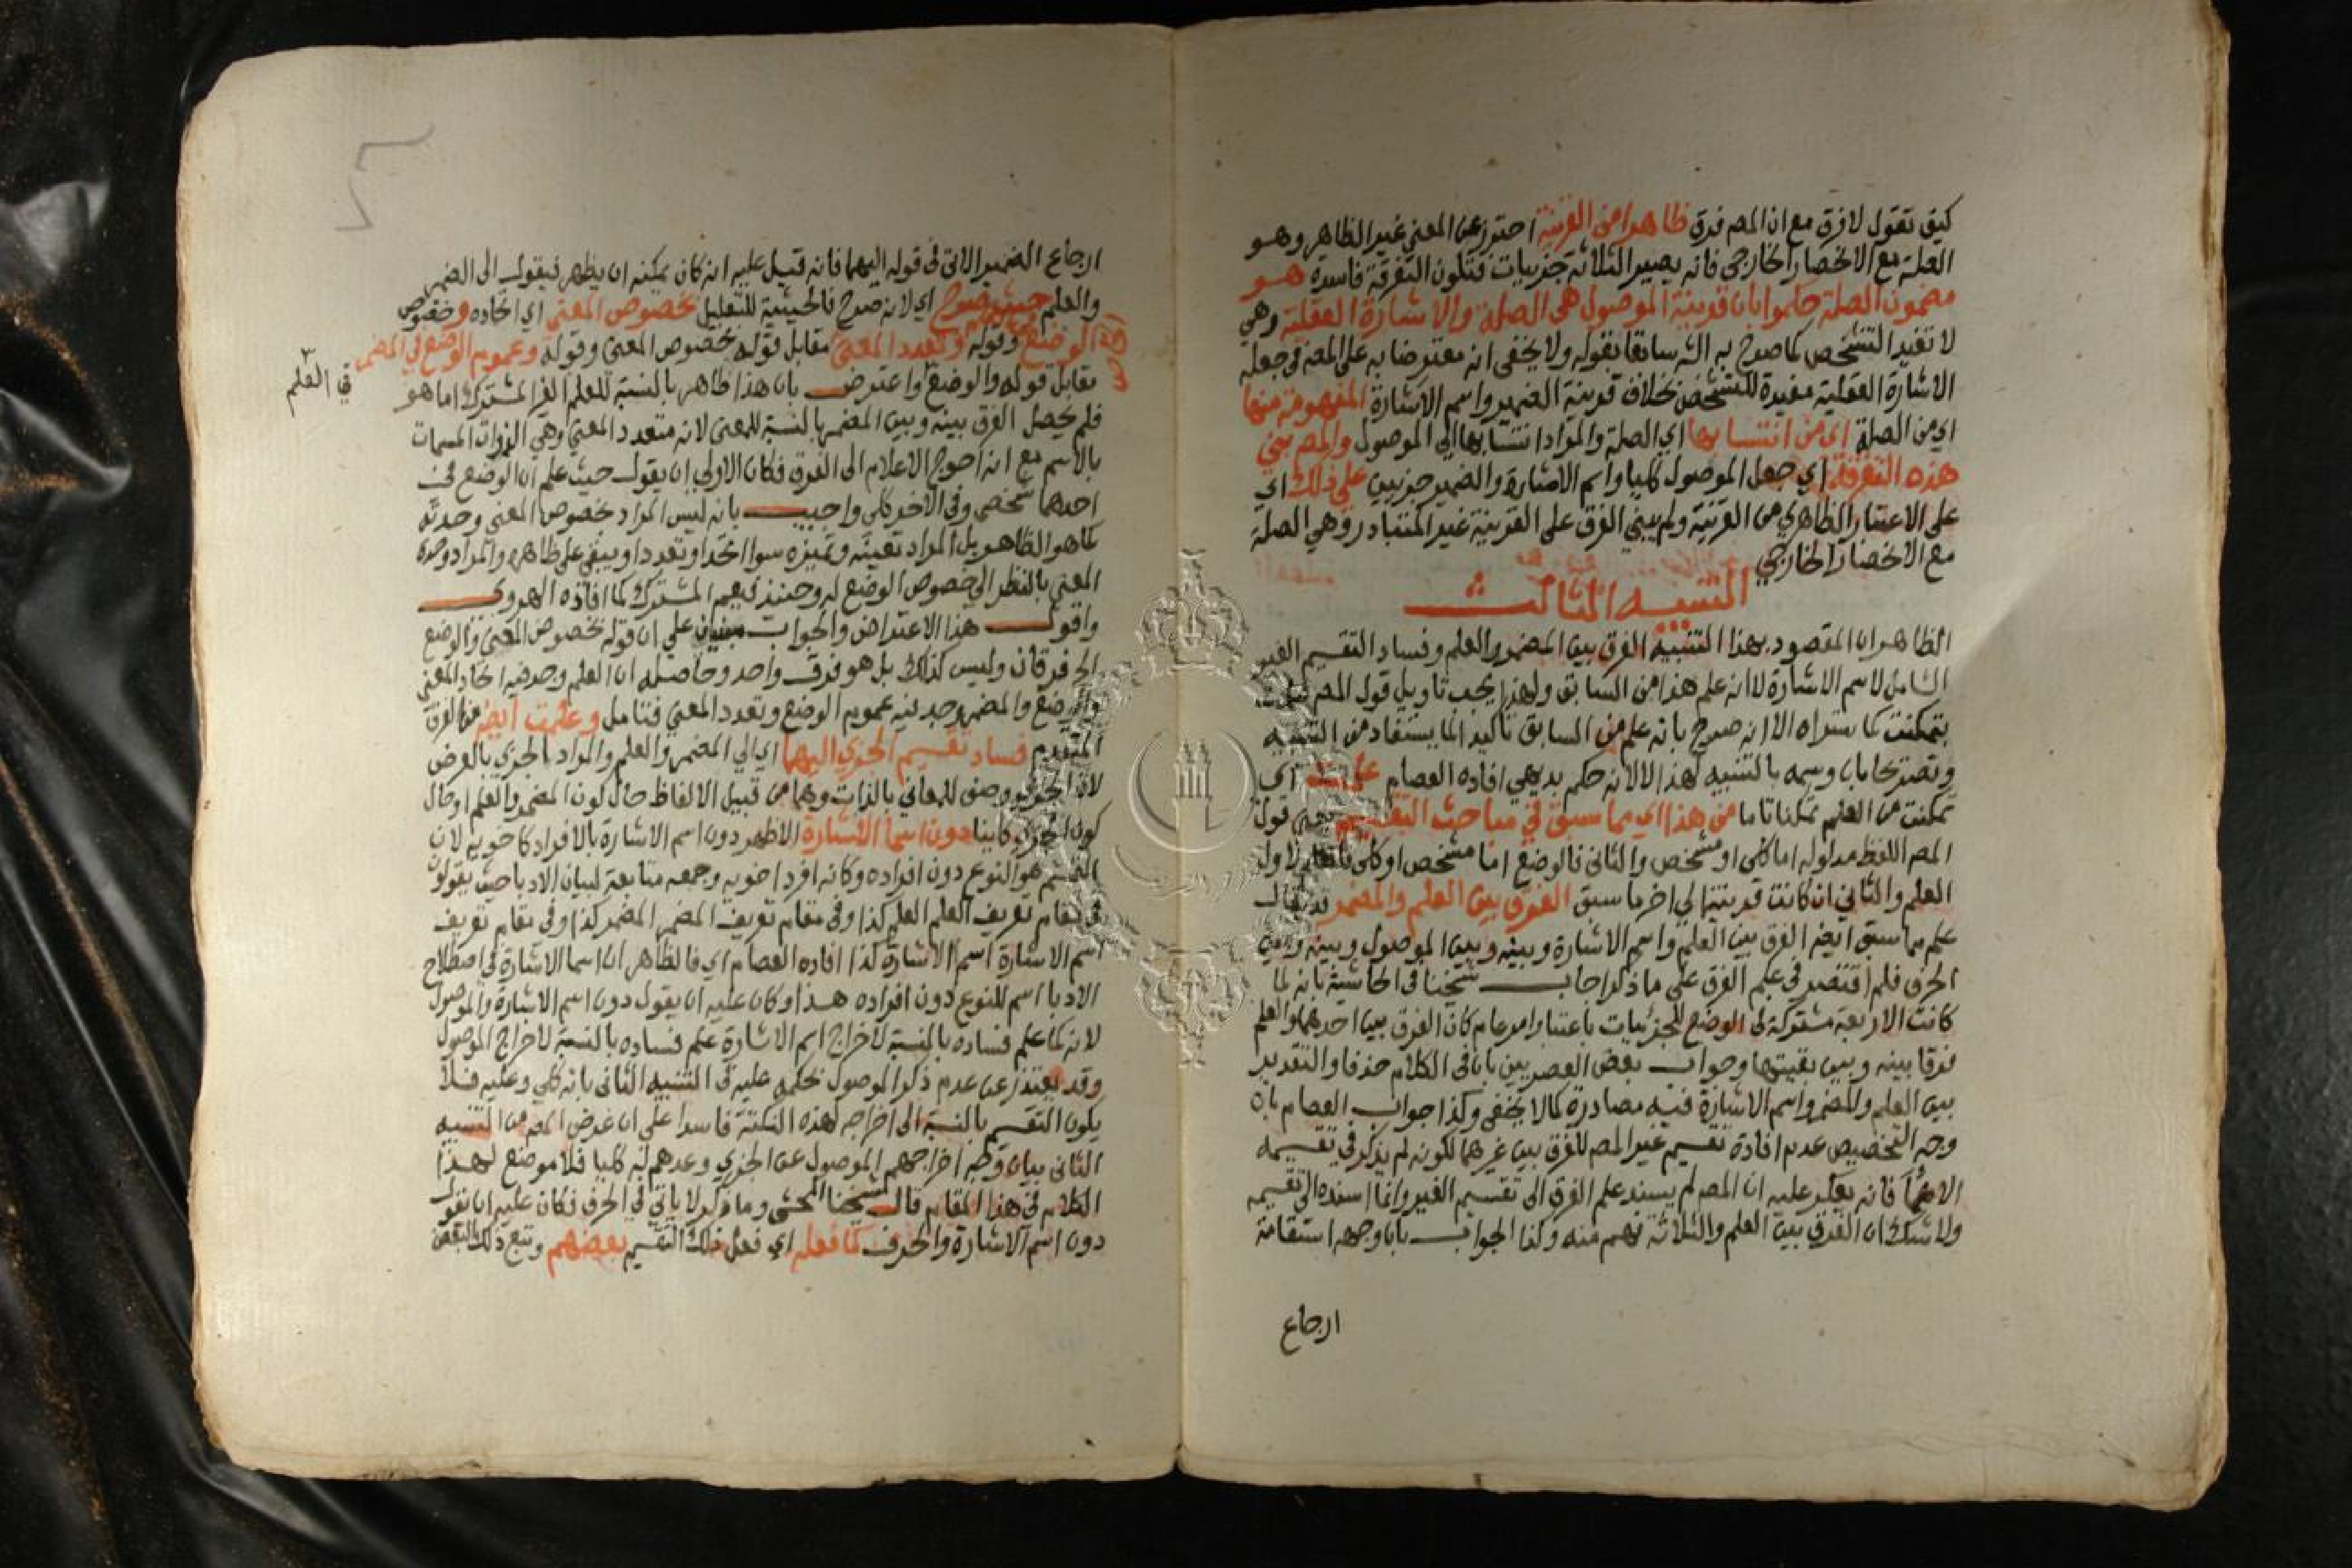 كيف تقول لا فرق مع ان المصـ فرق ظاهرا من القرينة احترز عن المعني غير الظاهر وهو
الصلة مع الانحصار الخارجي فانه يصير الثلاثة جزييات فتكون التفرقة فاسدة هو
مضمون الصلة حكموا بان قرينة الموصول هي الصلة والاشارة العقلية وهي
لا تفيد التشخص كما صرح به الشـ سابقا بقوله ولا يخفى انه معترضا به على المصـ في جعله
الاشارة العقلية مفيدة للتشخص بخلاف قرينة الضمير واسم الاشارة المفهومة منها
اي من الصلة اي من انتسابها اي الصلة والمراد انتسابها الي الموصول والمصـ بني
هذه التفرقة اي جعل الموصول كليا واسم الاشارة والضمير جزيين علي ذلك اي
على الاعتبار الظاهري من القرينة ولم يبني الفرق على القرينة غير المتبادر وهي الصلة
مع الانحصار الخارجي
التنبيه الثالث
الظاهر ان المقصود بهذا التنبيه الفرق بين المضمر والعلم وفساد التقسيم الغير
الشامل لاسم الاشارة لا انه علم هذا من السابق ولهذا يجب تاويل قول المصـ علمت
بتمكنت كما ستراه الا انه صرح بانه علم من السابق تاكيد انما يستفاد من التنبيه
وتصريحا بان وسمه بالتنبيه لهذا لا لانه حكم بديهي افاده العصام علمت اي
تمكنت من العلم تمكنا تاما من هذا اي مما سبق في مباحث التقسيم يعني قول
المصـ اللفظ مدلوله اما كلي او مشخص والثاني فالوضع اما مشخص او كلي فالاول
العلم والثاني ان كانت قرينته الي اخر ما سبق الفرق بين العلم والمضمر قد يقال
علم مما سبق ايضا الفرق بين العلم واسم الاشارة وبينه وبين الموصول وبينه وبين
الحرف فلم اقتصر في علم الفرق على ما ذكر اجاب شيخنا في الحاشية بانه لما
كانت الاربعة مشتركة في الوضع للجزييات باعتبار امر عام كان الفرق بين احدهما والعلم
فرقا بينه وبين بقيتها وجواب بعض العصريين بان في الكلام حذفا والتقدير
بين العلم والمضمر واسم الاشارة فيه مصادرة كما لا يخفى وكذا جواب العصام بان
وجه التخصيص عدم افادة تقسيم غير المصـ للفرق بين غيرهما لكونه لم يذكر في تقسيمه
الا هما فانه يعكر عليه ان المصـ لم يسند علم الفرق الى تقسيم الغير وانما اسنده الى تقسيمه
ولا شك ان الفرق بين العلم والثلاثة يفهم منه وكذا الجواب بان وجهه استقامة
ارجاع
ارجاع الضمير الاتي في قوله اليهما فانه قيل عليه انه كان يمكنه ان يظهر فيقول الى الضمير
والعلم حيث صرح اي لانه صرح فالحيثية للتعليل بخصوص المعنى اي اتحاده وخصوص
الوضع وقوله وتعدد المعنى مقابل قوله بخصوص المعنى وقوله وعموم الوضع في المضمر
في العلم
مقابل قوله والوضع واعترض بان هذا ظاهر بالنسبة للعلم الغير المشترك اما هو
فلم يحصل الفرق بينه وبين المضمر بالنسبة للمعنى لانه متعدد المعني وهي الذوات المسمات
بالاسم مع انه احوج الاعلام الى الفرق فكان الاولي ان يقول حيث علم ان الوضع في
احدهما شخصي وفي الاخر كلي واجيب بانه ليس المراد بخصوص المعني وحدته
كما هو الظاهر بل المراد تعينه وتميزه سوا اتحد او تعدد او يبقى على ظاهره والمراد وحدة
المعني بالنظر الي خصوص الوضع له وحينئذ فيعم المشترك كما افاده الهروي
واقول هذا الاعتراض والجواب مبنيان علي ان قوله بخصوص المعني والوضع
الخ فرقان وليس كذلك بل هو فرق واحد وحاصله ان العلم وجد فيه اتحاد المعني
والوضع والمضمر وجد فيه عموم الوضع وتعدد المعني فتامل وعلمت ايضا من الفرق
المتقدم فساد تقسيم الجزي اليهما اي الي المضمر والعلم والمراد الجزي بالعرض
لان الجزي وصف للمعاني بالذات وهما من قبيل الالفاظ حال كون المضمر والعلم او حال
كون الجزي كاينا دون اسما الاشارة الاظهر دون اسم الاشارة بالافراد كاخويه لان
القسم هو النوع دون افراده وكانه افرد اخويه وجمعه متابعة لبيان الادبا حيث يقولون
في مقام تعريف العلم العلم كذا وفي مقام تعريف المضمر المضمر كذا وفي مقام تعريف
اسم الاشارة اسم الاشارة كذا افاده العصام اي فالظاهر ان اسما الاشارة في اصطلاح
الادبا اسم للنوع دون افراده هذا وكان عليه ان يقول دون اسم الاشارة والموصول
لانه كما علم فساده بالنسبة لاخراج اسم الاشارة علم فساده بالنسبة لاخراج الموصول
وقد يعتذر عن عدم ذكر الموصول بحكمه عليه في التنبيه الثاني بانه كلي وعليه فلا
يكون التقسيم بالنسبة الى اخراجه لهذه النكتة فاسدا علي ان غرض المصـ من التنبيه
الثاني بيان وجه اخراجهم الموصول عن الجزي وعدهم له كليا فلا موضع لهذا
الكلام في هذا المقام قال شيخنا المحشي وما ذكر لا ياتي في الحرف فكان عليه ان يقول
دون اسم الاشارة والحرف كما فعله اي فعل ذلك التقسيم بعضهم وتبع ذلك البعض